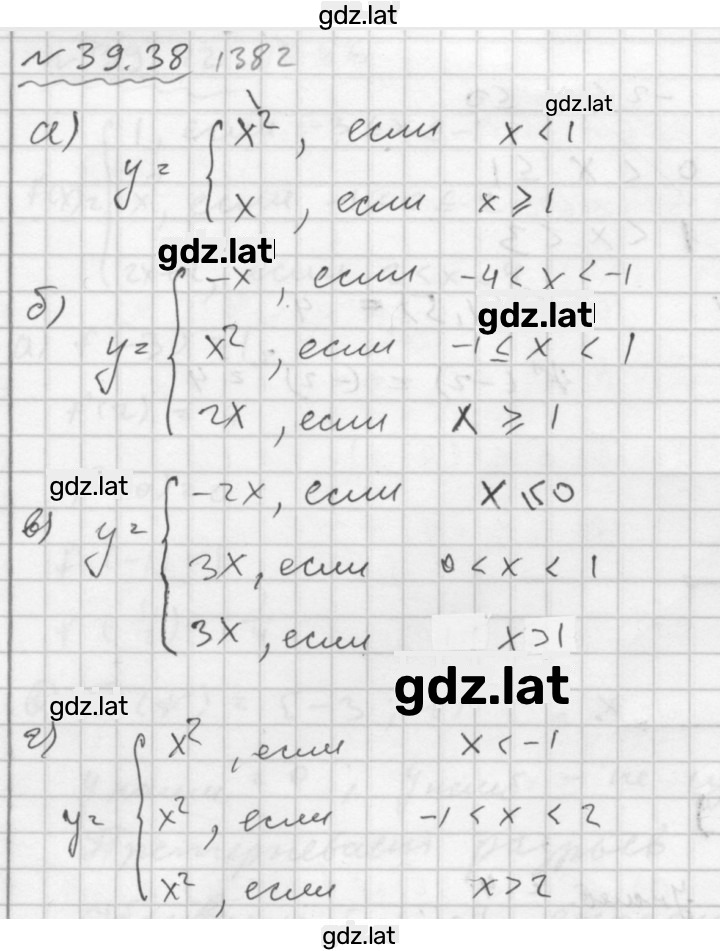 gdz.lat
№ 39.38 1382
gdz.lat
а) y = { x², если x < 1
x, если x ⩾ 1
gdz.lat
б) y = { -x, если -4 < x < -1
gdz.lat
x², если -1 ≤ x < 1
2x, если x ⩾ 1
gdz.lat
в) y = { -2x, если x ⩽ 0
3x, если 0 < x < 1
3x, если x > 1
gdz.lat
gdz.lat
г) y = { x², если x < -1
x², если -1 < x < 2
x², если x > 2
gdz.lat